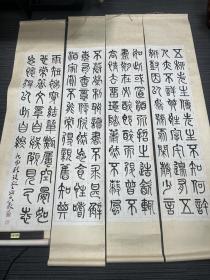 五柳先生傳先生不知何許
人也亦不詳其姓字宅邊有五
柳樹因以為號焉閑靜少言
如此或置酒而招之造飲輒
盡期在必醉既醉而退曾不
吝情去留環堵蕭然不蔽風
不慕榮利好讀書不求甚解
每有會意便欣然忘食性嗜
酒家貧不能常得親舊知其
日短褐穿結簞瓢屢空晏如
也常著文章自娛頗示己志
忘懷得失以此自終